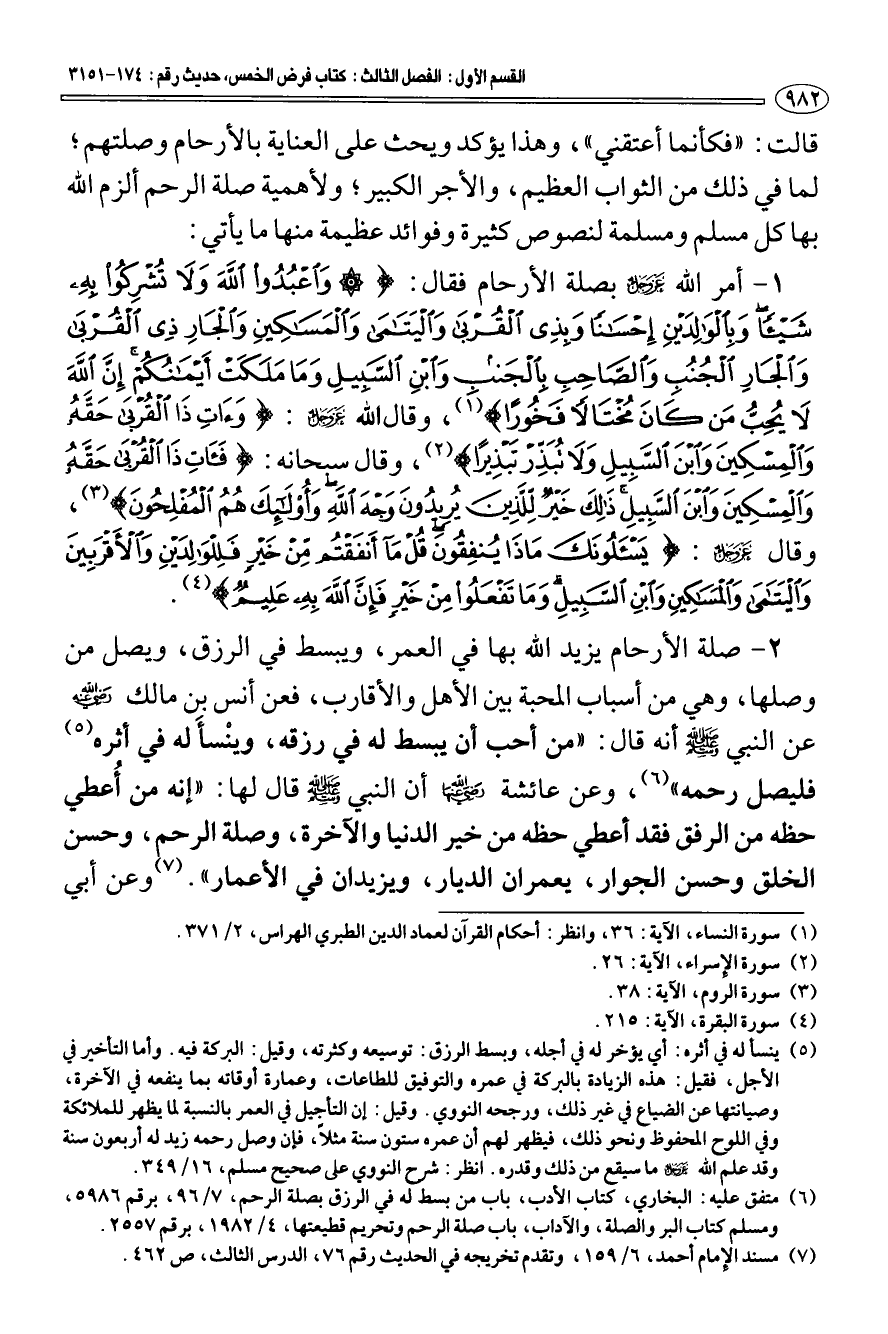 القسم الأول: الفصل الثالث: كتاب فرض الخمس، حديث رقم: ١٧٤-٣١٥١
٩٨٢
قالت: «فكأنما أعتقني»، وهذا يؤكد ويحث على العناية بالأرحام وصلتهم؛
لما في ذلك من الثواب العظيم، والأجر الكبير؛ ولأهمية صلة الرحم ألزم الله
بها كل مسلم ومسلمة لنصوص كثيرة وفوائد عظيمة منها ما يأتي:
١- أمر الله عَزَّوَجَلَّ بصلة الأرحام فقال: ﴿ ۞ وَٱعْبُدُوا۟ ٱللَّهَ وَلَا تُشْرِكُوا۟ بِهِۦ
شَيْـًٔا ۖ وَبِٱلْوَٰلِدَيْنِ إِحْسَـٰنًا وَبِذِى ٱلْقُرْبَىٰ وَٱلْيَتَـٰمَىٰ وَٱلْمَسَـٰكِينِ وَٱلْجَارِ ذِى ٱلْقُرْبَىٰ
وَٱلْجَارِ ٱلْجُنُبِ وَٱلصَّاحِبِ بِٱلْجَنۢبِ وَٱبْنِ ٱلسَّبِيلِ وَمَا مَلَكَتْ أَيْمَـٰنُكُمْ ۗ إِنَّ ٱللَّهَ
لَا يُحِبُّ مَن كَانَ مُخْتَالًا فَخُورًا﴾(١)، وقال الله عَزَّوَجَلَّ : ﴿ وَءَاتِ ذَا ٱلْقُرْبَىٰ حَقَّهُۥ
وَٱلْمِسْكِينَ وَٱبْنَ ٱلسَّبِيلِ وَلَا تُبَذِّرْ تَبْذِيرًا﴾(٢)، وقال سبحانه: ﴿ فَـَٔاتِ ذَا ٱلْقُرْبَىٰ حَقَّهُۥ
وَٱلْمِسْكِينَ وَٱبْنَ ٱلسَّبِيلِ ۚ ذَٰلِكَ خَيْرٌ لِّلَّذِينَ يُرِيدُونَ وَجْهَ ٱللَّهِ ۖ وَأُو۟لَـٰٓئِكَ هُمُ ٱلْمُفْلِحُونَ﴾(٣)،
وقال عَزَّوَجَلَّ : ﴿ يَسْـَٔلُونَكَ مَاذَا يُنفِقُونَ ۖ قُلْ مَآ أَنفَقْتُم مِّنْ خَيْرٍ فَلِلْوَٰلِدَيْنِ وَٱلْأَقْرَبِينَ
وَٱلْيَتَـٰمَىٰ وَٱلْمَسَـٰكِينِ وَٱبْنِ ٱلسَّبِيلِ ۗ وَمَا تَفْعَلُوا۟ مِنْ خَيْرٍ فَإِنَّ ٱللَّهَ بِهِۦ عَلِيمٌ﴾(٤).
٢- صلة الأرحام يزيد الله بها في العمر، ويبسط في الرزق، ويصل من
وصلها، وهي من أسباب المحبة بين الأهل والأقارب، فعن أنس بن مالك رَضِيَ اللَّهُ عَنْهُ
عن النبي ﷺ أنه قال: «من أحب أن يبسط له في رزقه، وينْسأَ له في أثره(٥)
فليصل رحمه»(٦)، وعن عائشة رَضِيَ اللَّهُ عَنْهَا أن النبي ﷺ قال لها: «إنه من أُعطي
حظه من الرفق فقد أعطي حظه من خير الدنيا والآخرة، وصلة الرحم، وحسن
الخلق وحسن الجوار، يعمران الديار، ويزيدان في الأعمار».(٧) وعن أبي
(١) سورة النساء، الآية: ٣٦، وانظر: أحكام القرآن لعماد الدين الطبري الهراس، ٢/ ٣٧١.
(٢) سورة الإسراء، الآية: ٢٦.
(٣) سورة الروم، الآية: ٣٨.
(٤) سورة البقرة، الآية: ٢١٥.
(٥) ينسأ له في أثره: أي يؤخر له في أجله، وبسط الرزق: توسيعه وكثرته، وقيل: البركة فيه. وأما التأخير في
الأجل، فقيل: هذه الزيادة بالبركة في عمره والتوفيق للطاعات، وعمارة أوقاته بما ينفعه في الآخرة،
وصيانتها عن الضياع في غير ذلك، ورجحه النووي. وقيل: إن التأجيل في العمر بالنسبة لما يظهر للملائكة
وفي اللوح المحفوظ ونحو ذلك، فيظهر لهم أن عمره ستون سنة مثلاً، فإن وصل رحمه زيد له أربعون سنة
وقد علم الله عَزَّوَجَلَّ ما سيقع من ذلك وقدره. انظر: شرح النووي على صحيح مسلم، ١٦/ ٣٤٩.
(٦) متفق عليه: البخاري، كتاب الأدب، باب من بسط له في الرزق بصلة الرحم، ٧/ ٩٦، برقم ٥٩٨٦،
ومسلم كتاب البر والصلة، والآداب، باب صلة الرحم وتحريم قطيعتها، ٤/ ١٩٨٢، برقم ٢٥٥٧.
(٧) مسند الإمام أحمد، ٦/ ١٥٩، وتقدم تخريجه في الحديث رقم ٧٦، الدرس الثالث، ص ٤٦٢.